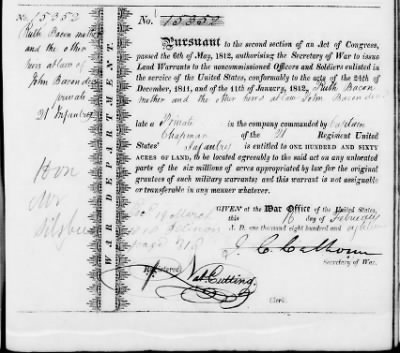 No. 15352
Ruth Bacon mother
and the other
heirs at law of
John Bacon decd
private
21 Infantry
Hon
Mr
Silsbee
WAR DEPARTMENT.
No. 15352
Pursuant to the second section of an Act of Congress,
passed the 6th of May, 1812, authorising the Secretary of War to issue
Land Warrants to the noncommissioned Officers and Soldiers enlisted
in the service of the United States, conformably to the acts of the 24th
of December, 1811, and of the 11th of January, 1812, Ruth Bacon
mother and the other heirs at law John Bacon decd
late a Private in the company commanded by Captain
Chapman of the 21 Regiment United
States' Infantry is entitled to ONE HUNDRED AND SIXTY
ACRES OF LAND, to be located agreeably to the said act on any unlocated
part of the six millions of acres appropriated by law for the original
grantees of such military warrants and this warrant is not assignable
or transferable in any manner whatever.
GIVEN at the War Office of the United States,
this 16 day of February
A. D. one thousand eight hundred and eighteen
J. C. Calhoun
Secretary of War.
Registered
Nat. Cutting
Clerk.